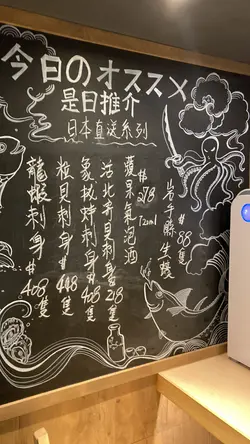 今日のオススメ
是日推介
日本直送系列
生蠔 $88隻
蘋果氣泡酒 $278
720ml
活北寄貝刺身 $218隻
象拔蚌刺身 $408隻
粒貝刺身 $448隻
龍蝦刺身 $408隻